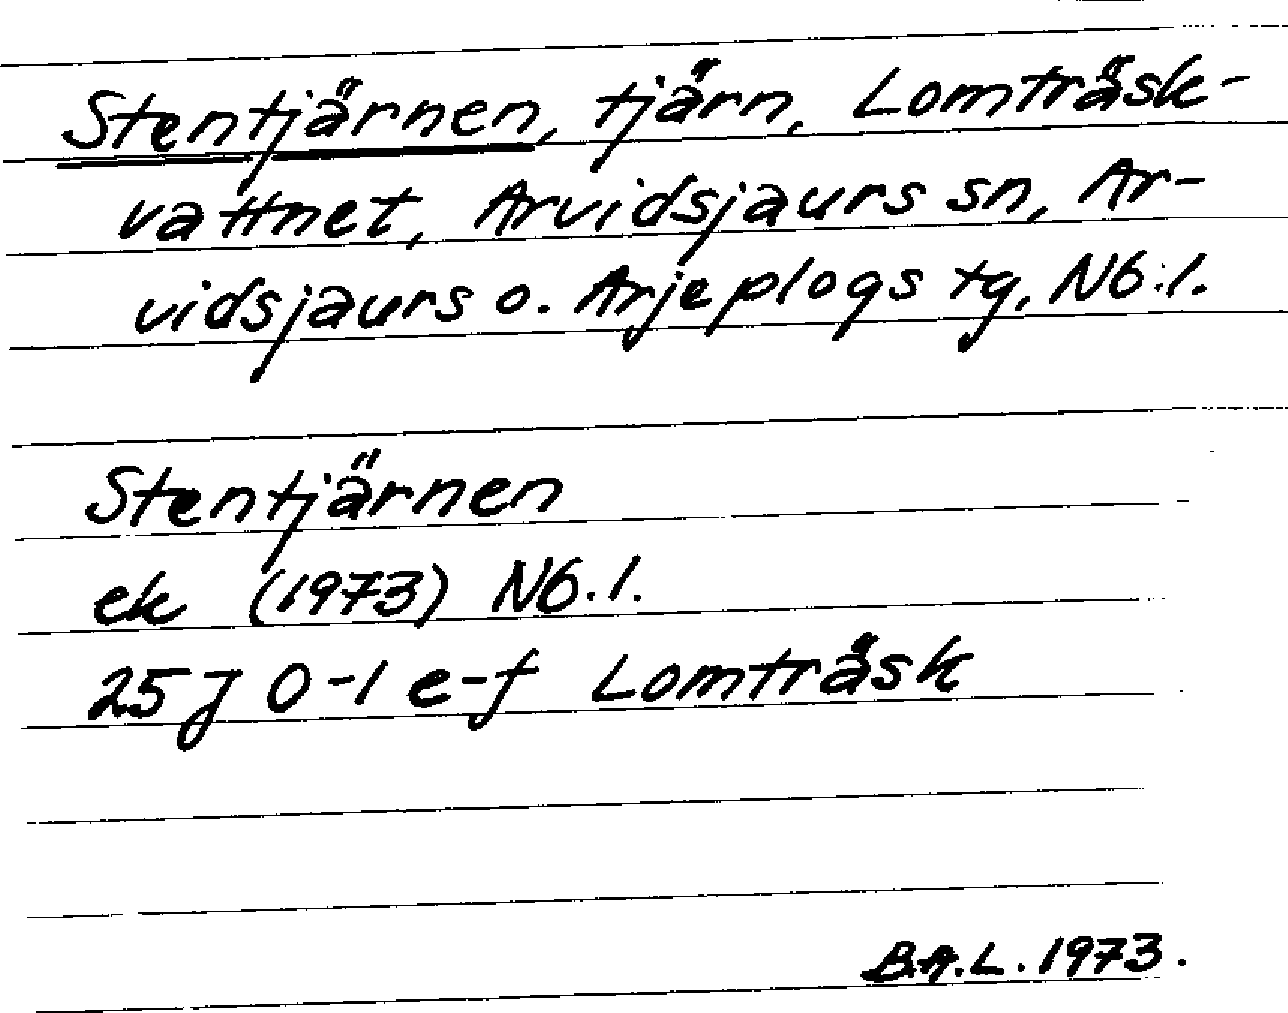 Stentjärnen, tjärn, Lomträsk-
vattnet, Arvidsjaurs sn, Ar-
vidsjaurs o. Arjeplogs tg, Nb.l.
Stentjärnen
ek (1973) Nb.l.
25 J 0-1 e-f Lomträsk
B.A.L. 1973.